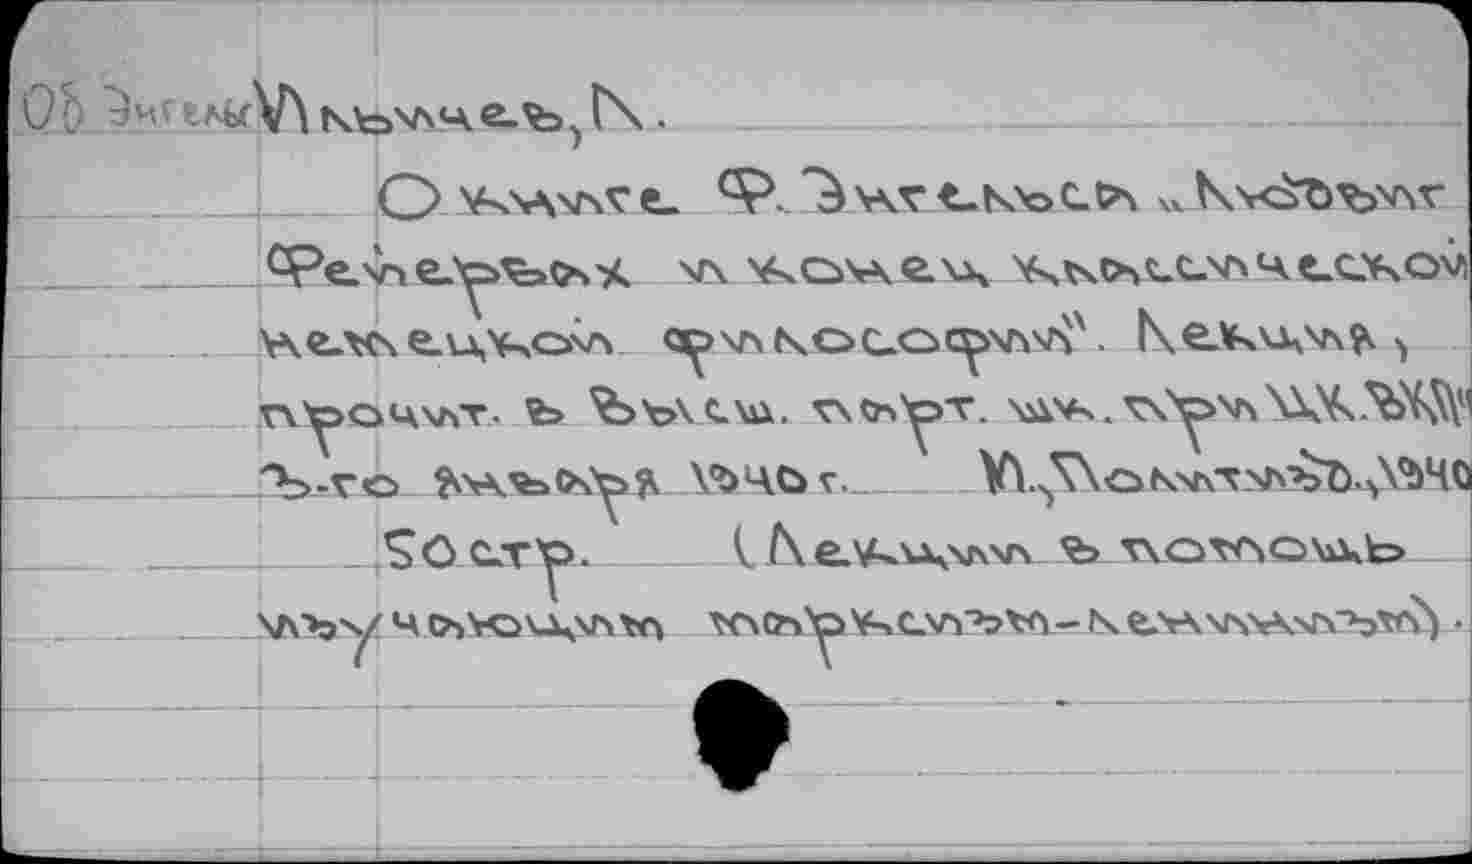 Об Энгельс Ильичев, Л.
О книге Ф. Энгельса „Людвиг
Фейербах и конец классической
немецкой философии". Лекция,
прочит. в Высш. парт. шк. при ЦК.ВКП
3-го января 1940 г. М., Политизд., 1940
50 стр. (Лекции в помощь
изучающим марксизм-ленинизм).